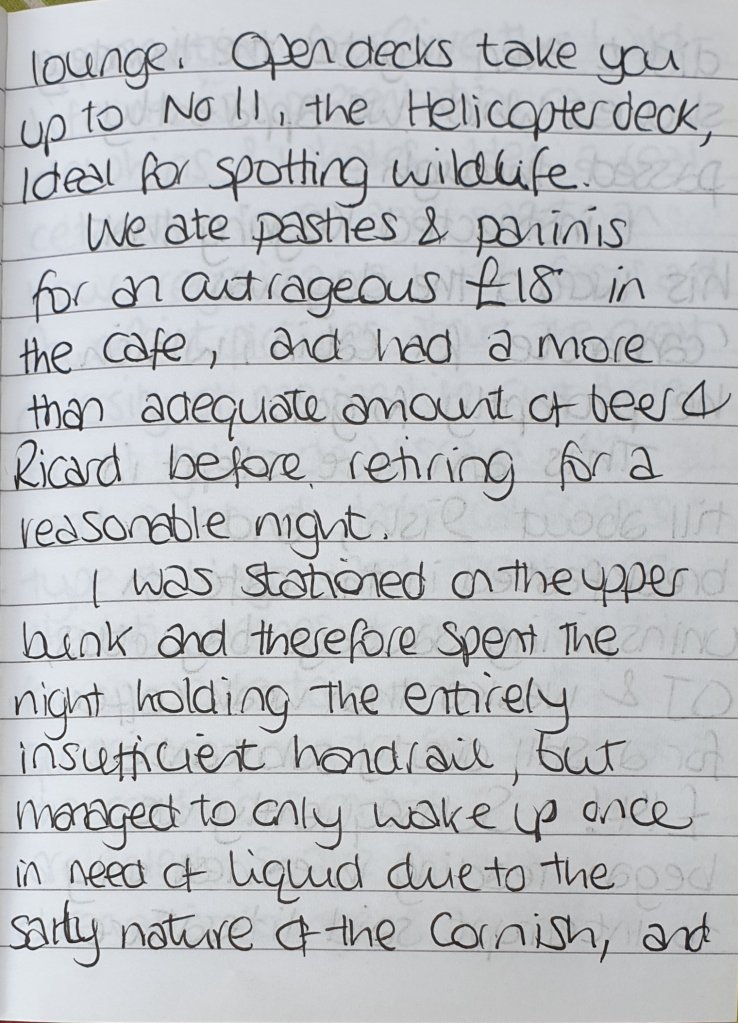 lounge. Open decks take you
up to No 11, the Helicopter deck,
Ideal for spotting wildlife.
We ate pasties & paninis
for an outrageous £18 in
the cafe, and had a more
than adequate amount of beer &
Ricard before retiring for a
reasonable night.
I was stationed on the upper
bunk and therefore spent the
night holding the entirely
insufficient handrail, but
managed to only wake up once
in need of liquid due to the
salty nature of the Cornish, and